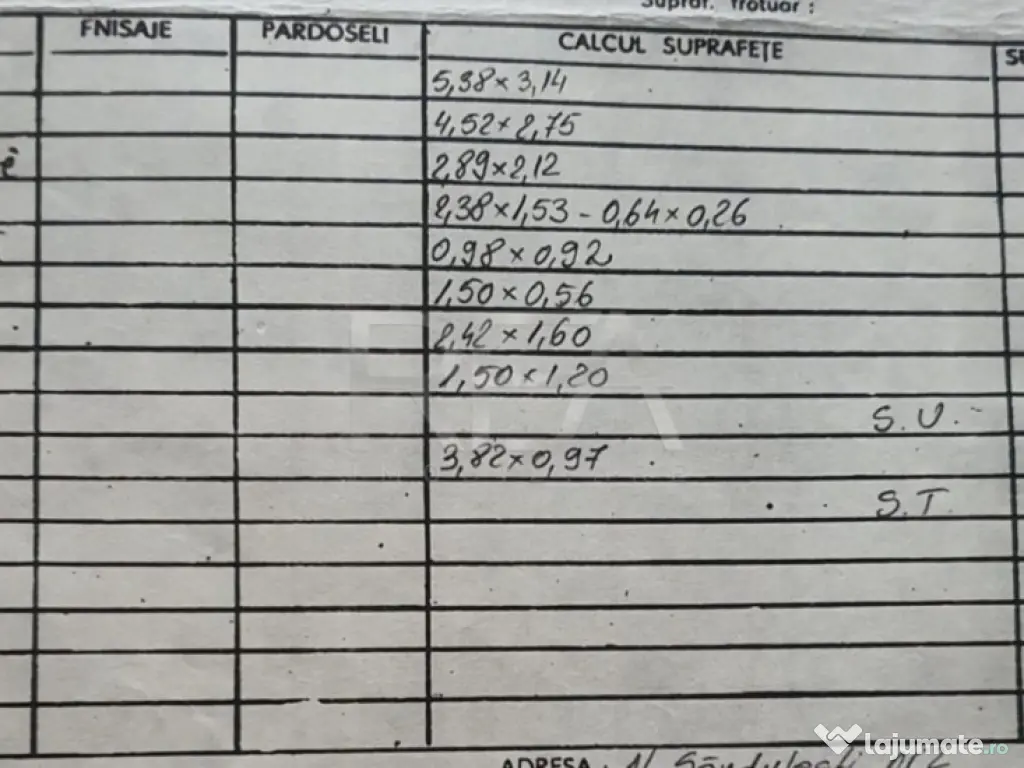 Supraf. Trotuar :
FNISAJE PARDOSELI CALCUL SUPRAFEȚE SU
5,38 × 3,14
4,52 × 2,75
2,89 × 2,12
2,38 × 1,53 - 0,64 × 0,26
0,98 × 0,92
1,50 × 0,56
2,42 × 1,60
1,50 × 1,20
S.U.
3,82 × 0,97
S.T.
ADRESA :
lajumate.ro